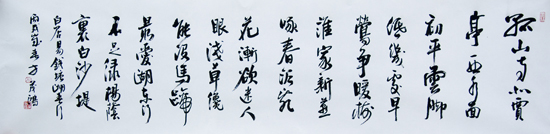 孤山寺北賈
亭西水面
初平雲脚
低幾處早
鶯爭暖樹
誰家新燕
啄春泥乱
花漸欲迷人
眼淺草纔
能没馬蹄
最愛湖東行
不足緑楊陰
裏白沙堤
白居易錢塘湖春行
丙戌歲春方